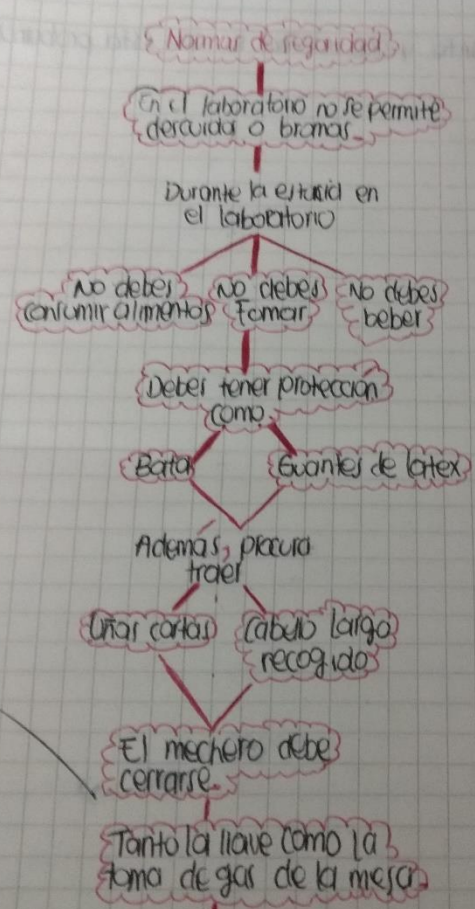 Normas de seguridad
En el laboratorio no se permite
descuidos o bromas.
Durante la estancia en
el laboratorio
No debes
consumir alimentos
No debes
Fumar
No debes
beber
Debes tener protección
como
Bata
Guantes de latex
Además, procura
traer
Uñas cortas
Cabello largo
recogido
El mechero debe
cerrarse.
Tanto la llave como la
toma de gas de la mesa.